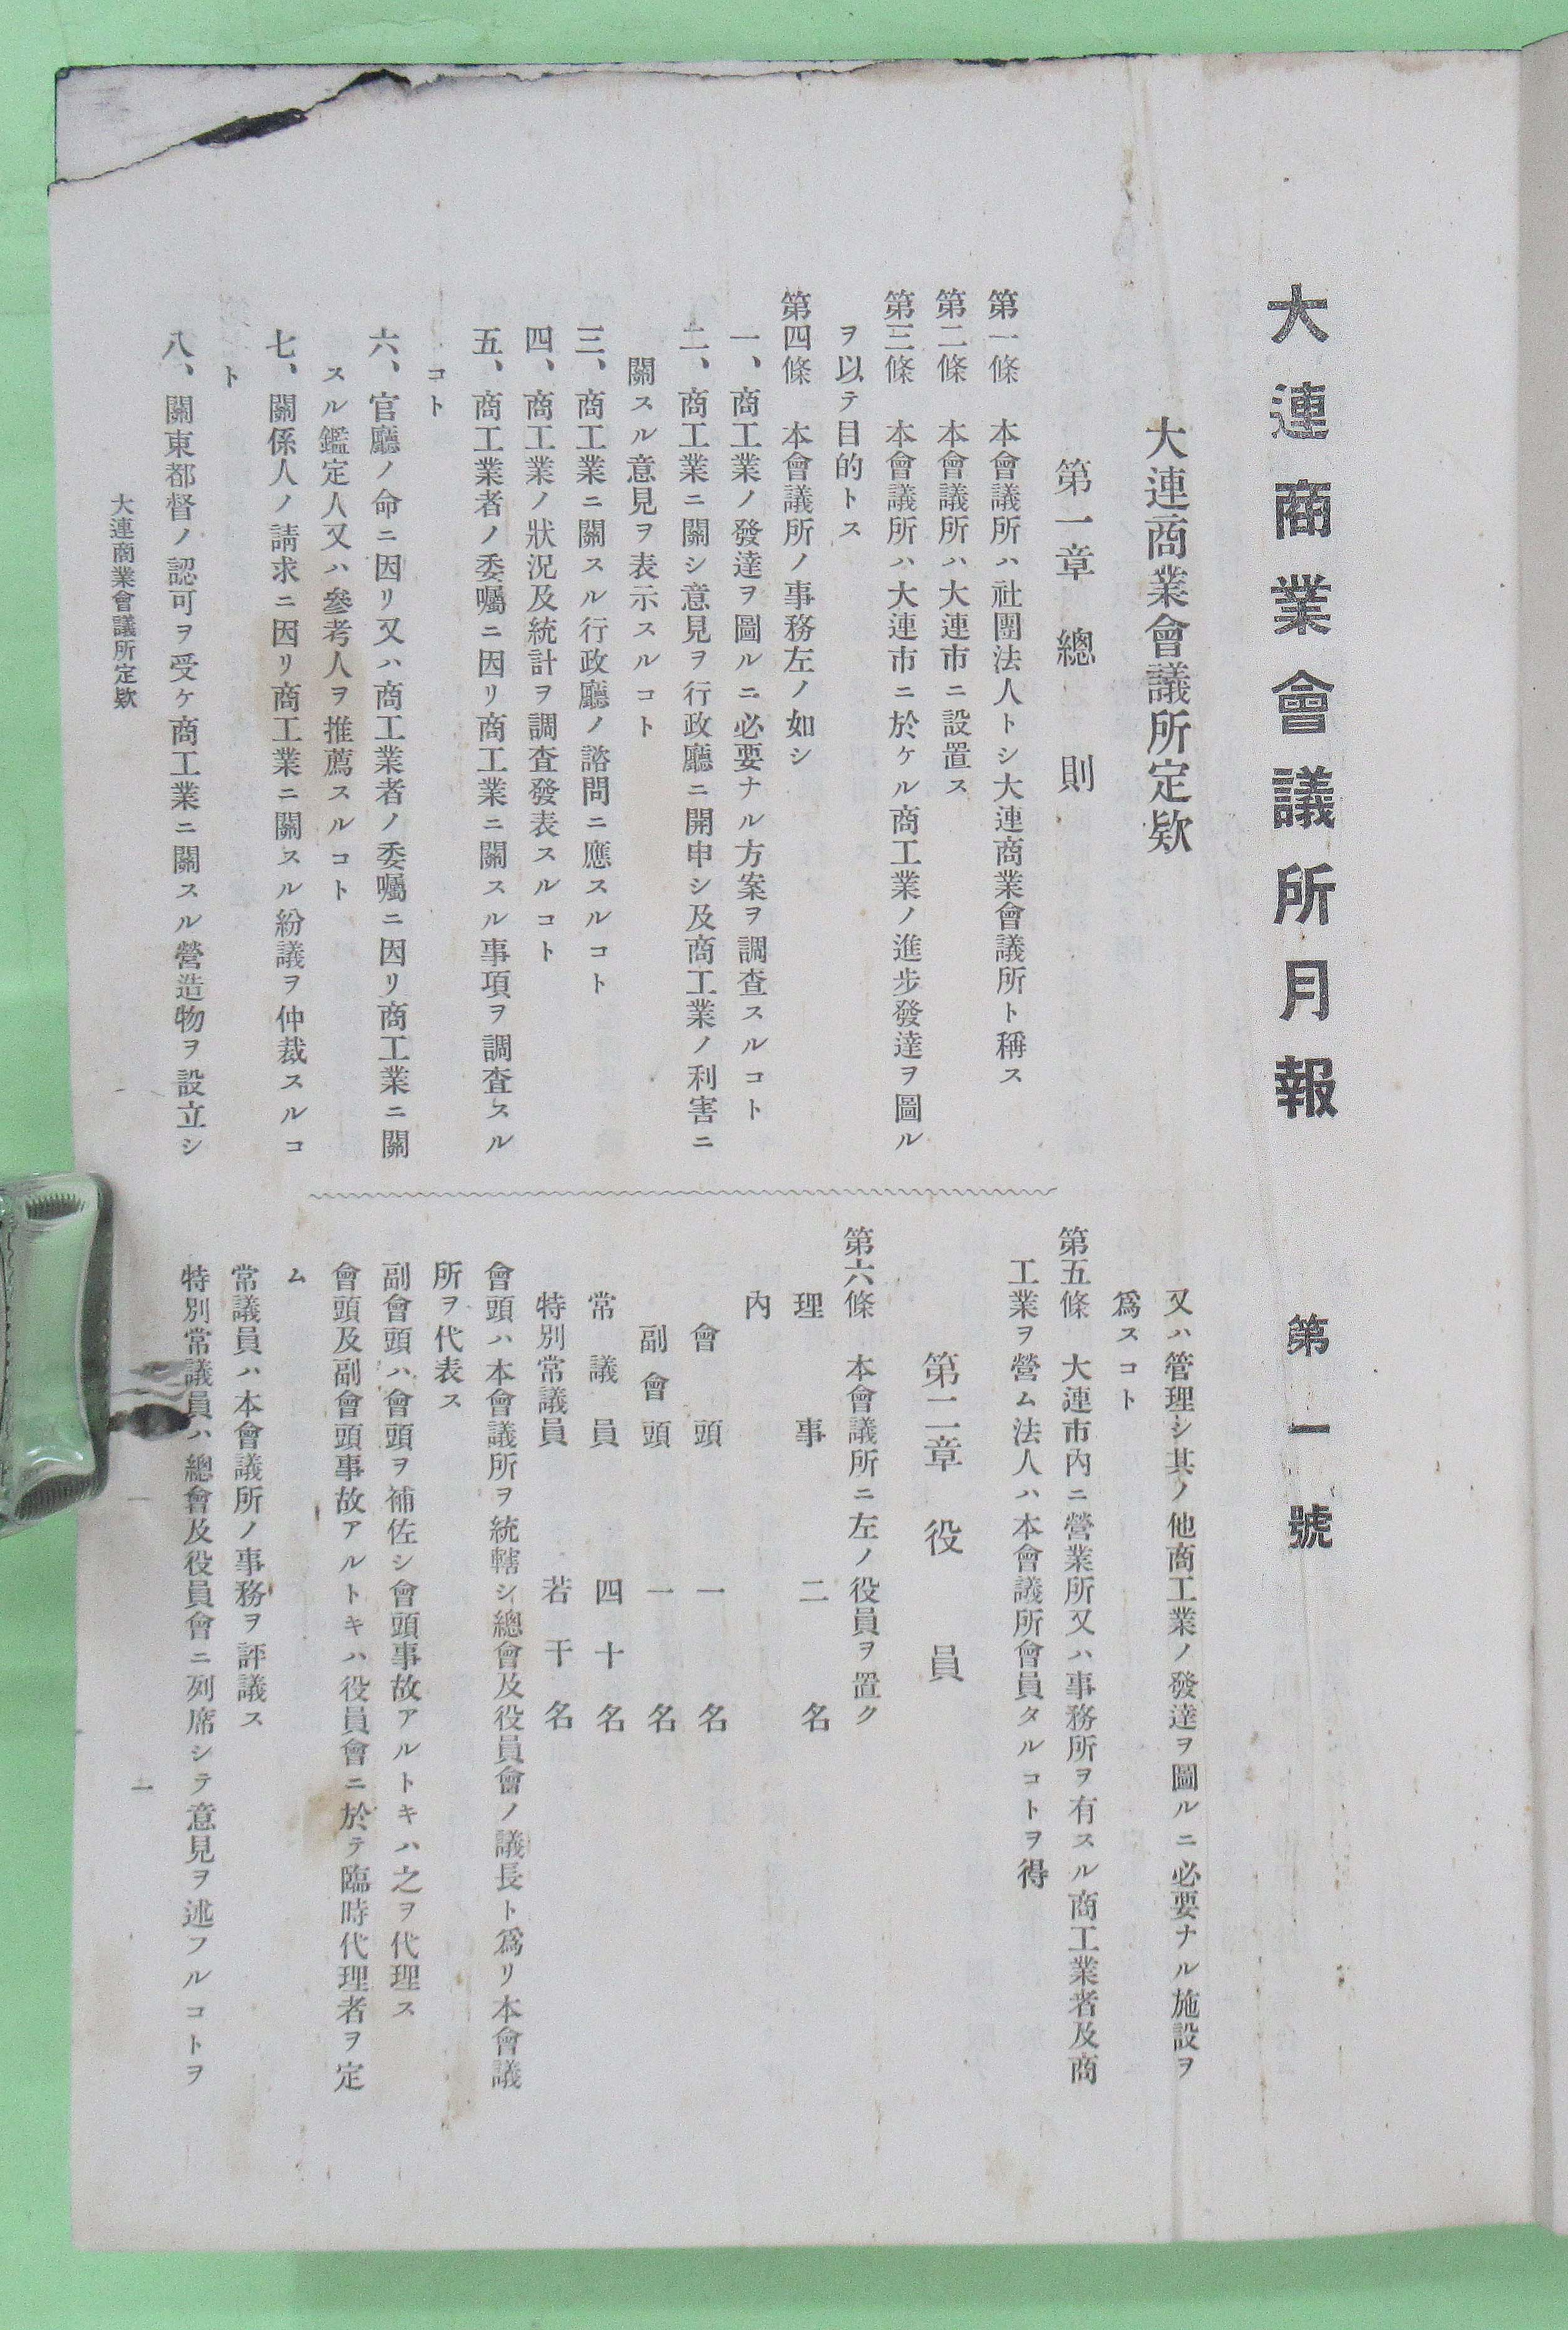 大連商業會議所月報　第一號
大連商業會議所定欵
第一章　總　則
第一條　本會議所ハ社團法人トシ大連商業會議所ト稱ス
第二條　本會議所ハ大連市ニ設置ス
第三條　本會議所ハ大連市ニ於ケル商工業ノ進步發達ヲ圖ル
ヲ以テ目的トス
第四條　本會議所ノ事務左ノ如シ
一、商工業ノ發達ヲ圖ルニ必要ナル方案ヲ調査スルコト
二、商工業ニ關シ意見ヲ行政廳ニ開申シ及商工業ノ利害ニ
關スル意見ヲ表示スルコト
三、商工業ニ關スル行政廳ノ諮問ニ應スルコト
四、商工業ノ狀況及統計ヲ調査發表スルコト
五、商工業者ノ委囑ニ因リ商工業ニ關スル事項ヲ調査スル
コト
六、官廳ノ命ニ因リ又ハ商工業者ノ委囑ニ因リ商工業ニ關
スル鑑定人又ハ參考人ヲ推薦スルコト
七、關係人ノ請求ニ因リ商工業ニ關スル紛議ヲ仲裁スルコ
ト
八、關東都督ノ認可ヲ受ケ商工業ニ關スル營造物ヲ設立シ
又ハ管理シ其ノ他商工業ノ發達ヲ圖ルニ必要ナル施設ヲ
爲スコト
第五條　大連市內ニ營業所又ハ事務所ヲ有スル商工業者及商
工業ヲ營ム法人ハ本會議所會員タルコトヲ得
第二章　役　員
第六條　本會議所ニ左ノ役員ヲ置ク
理　事　二　名
內
會　頭　一　名
副會頭　一　名
常議員　四十名
特別常議員　若干名
會頭ハ本會議所ヲ統轄シ總會及役員會ノ議長ト爲リ本會議
所ヲ代表ス
副會頭ハ會頭ヲ補佐シ會頭事故アルトキハ之ヲ代理ス
會頭及副會頭事故アルトキハ役員會ニ於テ臨時代理者ヲ定
ム
常議員ハ本會議所ノ事務ヲ評議ス
特別常議員ハ總會及役員會ニ列席シテ意見ヲ述フルコトヲ
大連商業會議所定欵
一